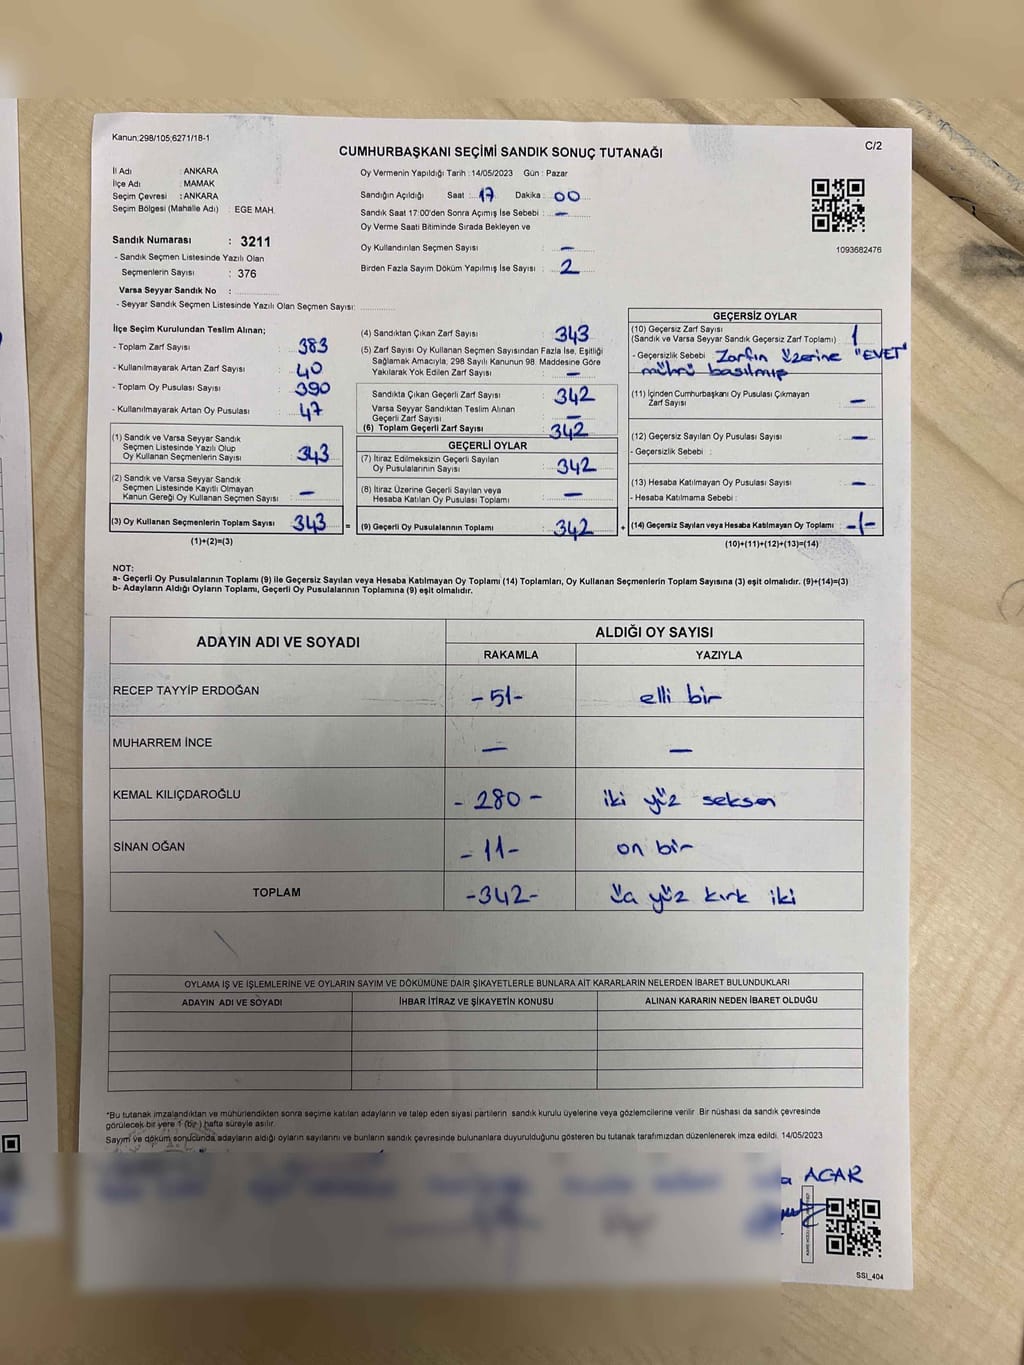 Kanun:298/105;6271/18-1
C/2
CUMHURBAŞKANI SEÇİMİ SANDIK SONUÇ TUTANAĞI
İl Adı : ANKARA
İlçe Adı : MAMAK
Seçim Çevresi : ANKARA
Seçim Bölgesi (Mahalle Adı) : EGE MAH.
Sandık Numarası : 3211
- Sandık Seçmen Listesinde Yazılı Olan
Seçmenlerin Sayısı : 376
Varsa Seyyar Sandık No :
- Seyyar Sandık Seçmen Listesinde Yazılı Olan Seçmen Sayısı:
Oy Vermenin Yapıldığı Tarih : 14/05/2023 Gün : Pazar
Sandığın Açıldığı Saat : 17 Dakika : 00
Sandık Saat 17:00'den Sonra Açımış İse Sebebi : —
Oy Verme Saati Bitiminde Sırada Bekleyen ve
Oy Kullandırılan Seçmen Sayısı : —
Birden Fazla Sayım Döküm Yapılmış İse Sayısı : 2
1093682476
İlçe Seçim Kurulundan Teslim Alınan;
- Toplam Zarf Sayısı : 383
- Kullanılmayarak Artan Zarf Sayısı : 40
- Toplam Oy Pusulası Sayısı : 390
- Kullanılmayarak Artan Oy Pusulası : 47
(1) Sandık ve Varsa Seyyar Sandık
Seçmen Listesinde Yazılı Olup
Oy Kullanan Seçmenlerin Sayısı : 343
(2) Sandık ve Varsa Seyyar Sandık
Seçmen Listesinde Kayıtlı Olmayan
Kanun Gereği Oy Kullanan Seçmen Sayısı : —
(3) Oy Kullanan Seçmenlerin Toplam Sayısı : 343 =
(1)+(2)=(3)
(4) Sandıktan Çıkan Zarf Sayısı : 343
(5) Zarf Sayısı Oy Kullanan Seçmen Sayısından Fazla İse, Eşitliği
Sağlamak Amacıyla, 298 Sayılı Kanunun 98. Maddesine Göre
Yakılarak Yok Edilen Zarf Sayısı : —
Sandıkta Çıkan Geçerli Zarf Sayısı : 342
Varsa Seyyar Sandıktan Teslim Alınan
Geçerli Zarf Sayısı : —
(6) Toplam Geçerli Zarf Sayısı : 342
GEÇERLİ OYLAR
(7) İtiraz Edilmeksizin Geçerli Sayılan
Oy Pusulalarının Sayısı : 342
(8) İtiraz Üzerine Geçerli Sayılan veya
Hesaba Katılan Oy Pusulası Toplamı : —
(9) Geçerli Oy Pusulalarının Toplamı : 342 +
GEÇERSİZ OYLAR
(10) Geçersiz Zarf Sayısı : 1
(Sandık ve Varsa Seyyar Sandık Geçersiz Zarf Toplamı)
- Geçersizlik Sebebi : Zarfın Üzerine "EVET"
mührü basılmış
(11) İçinden Cumhurbaşkanı Oy Pusulası Çıkmayan
Zarf Sayısı : —
(12) Geçersiz Sayılan Oy Pusulası Sayısı : —
- Geçersizlik Sebebi :
(13) Hesaba Katılmayan Oy Pusulası Sayısı : —
- Hesaba Katılmama Sebebi :
(14) Geçersiz Sayılan veya Hesaba Katılmayan Oy Toplamı : -1-
(10)+(11)+(12)+(13)=(14)
NOT:
a- Geçerli Oy Pusulalarının Toplamı (9) ile Geçersiz Sayılan veya Hesaba Katılmayan Oy Toplamı (14) Toplamları, Oy Kullanan Seçmenlerin Toplam Sayısına (3) eşit olmalıdır. (9)+(14)=(3)
b- Adayların Aldığı Oyların Toplamı, Geçerli Oy Pusulalarının Toplamına (9) eşit olmalıdır.
ADAYIN ADI VE SOYADI ALDIĞI OY SAYISI
RAKAMLA YAZIYLA
RECEP TAYYİP ERDOĞAN -51- elli bir
MUHARREM İNCE — —
KEMAL KILIÇDAROĞLU -280- iki yüz seksen
SİNAN OĞAN -11- on bir
TOPLAM -342- üç yüz kırk iki
OYLAMA İŞ VE İŞLEMLERİNE VE OYLARIN SAYIM VE DÖKÜMÜNE DAİR ŞİKAYETLERLE BUNLARA AİT KARARLARIN NELERDEN İBARET BULUNDUKLARI
ADAYIN ADI VE SOYADI İHBAR İTİRAZ VE ŞİKAYETİN KONUSU ALINAN KARARIN NEDEN İBARET OLDUĞU
*Bu tutanak imzalandıktan ve mühürlendikten sonra seçime katılan adayların ve talep eden siyasi partilerin sandık kurulu üyelerine veya gözlemcilerine verilir. Bir nüshası da sandık çevresinde
görülecek bir yere 1 (bir) hafta süreyle asılır.
Sayım ve döküm sonucunda adayların aldığı oyların sayılarını ve bunların sandık çevresinde bulunanlara duyurulduğunu gösteren bu tutanak tarafımızdan düzenlenerek imza edildi. 14/05/2023
a ACAR
SSI_404